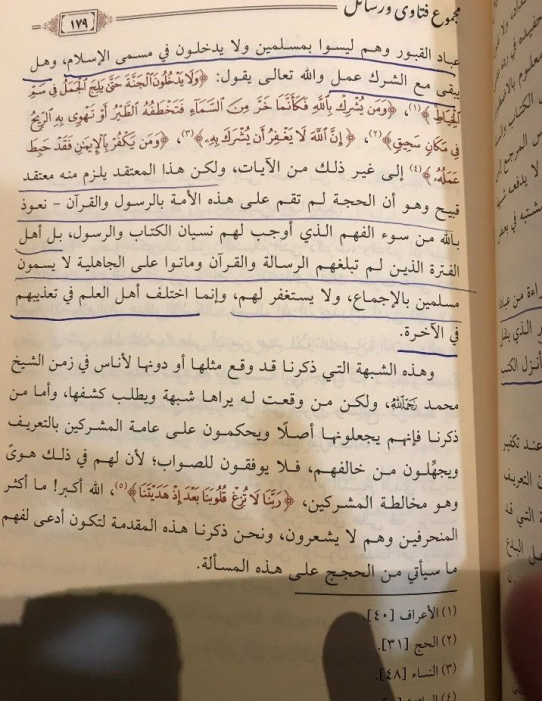 مجموع فتاوى ورسائل
١٧٩
عباد القبور وهم ليسوا بمسلمين ولا يدخلون في مسمى الإسلام، وهل
يبقى مع الشرك عمل والله تعالى يقول: ﴿وَلَا يَدْخُلُونَ الْجَنَّةَ حَتَّىٰ يَلِجَ الْجَمَلُ فِي سَمِّ
الْخِيَاطِ﴾(١)، ﴿وَمَن يُشْرِكْ بِاللَّهِ فَكَأَنَّمَا خَرَّ مِنَ السَّمَاءِ فَتَخْطَفُهُ الطَّيْرُ أَوْ تَهْوِي بِهِ الرِّيحُ
فِي مَكَانٍ سَحِيقٍ﴾(٢)، ﴿إِنَّ اللَّهَ لَا يَغْفِرُ أَن يُشْرَكَ بِهِ﴾(٣)، ﴿وَمَن يَكْفُرْ بِالْإِيمَانِ فَقَدْ حَبِطَ
عَمَلُهُ﴾(٤) إلى غير ذلك من الآيات، ولكن هذا المعتقد يلزم منه معتقد
قبيح وهو أن الحجة لم تقم على هذه الأمة بالرسول والقرآن - نعوذ
بالله من سوء الفهم الذي أوجب لهم نسيان الكتاب والرسول، بل أهل
الفترة الذين لم تبلغهم الرسالة والقرآن وماتوا على الجاهلية لا يسمون
مسلمين بالإجماع، ولا يستغفر لهم، وإنما اختلف أهل العلم في تعذيبهم
في الآخرة.
وهذه الشبهة التي ذكرنا قد وقع مثلها أو دونها لأناس في زمن الشيخ
محمد رَحِمَهُ اللَّهُ، ولكن من وقعت له يراها شبهة ويطلب كشفها، وأما من
ذكرنا فإنهم يجعلونها أصلًا ويحكمون على عامة المشركين بالتعريف
ويجهِّلون من خالفهم، فلا يوفقون للصواب؛ لأن لهم في ذلك هوىً
وهو مخالطة المشركين، ﴿رَبَّنَا لَا تُزِغْ قُلُوبَنَا بَعْدَ إِذْ هَدَيْتَنَا﴾(٥)، الله أكبر! ما أكثر
المنحرفين وهم لا يشعرون، ونحن ذكرنا هذه المقدمة لتكون أدعى لفهم
ما سيأتي من الحجج على هذه المسألة.
(١) الأعراف [٤٠].
(٢) الحج [٣١].
(٣) النساء [٤٨].